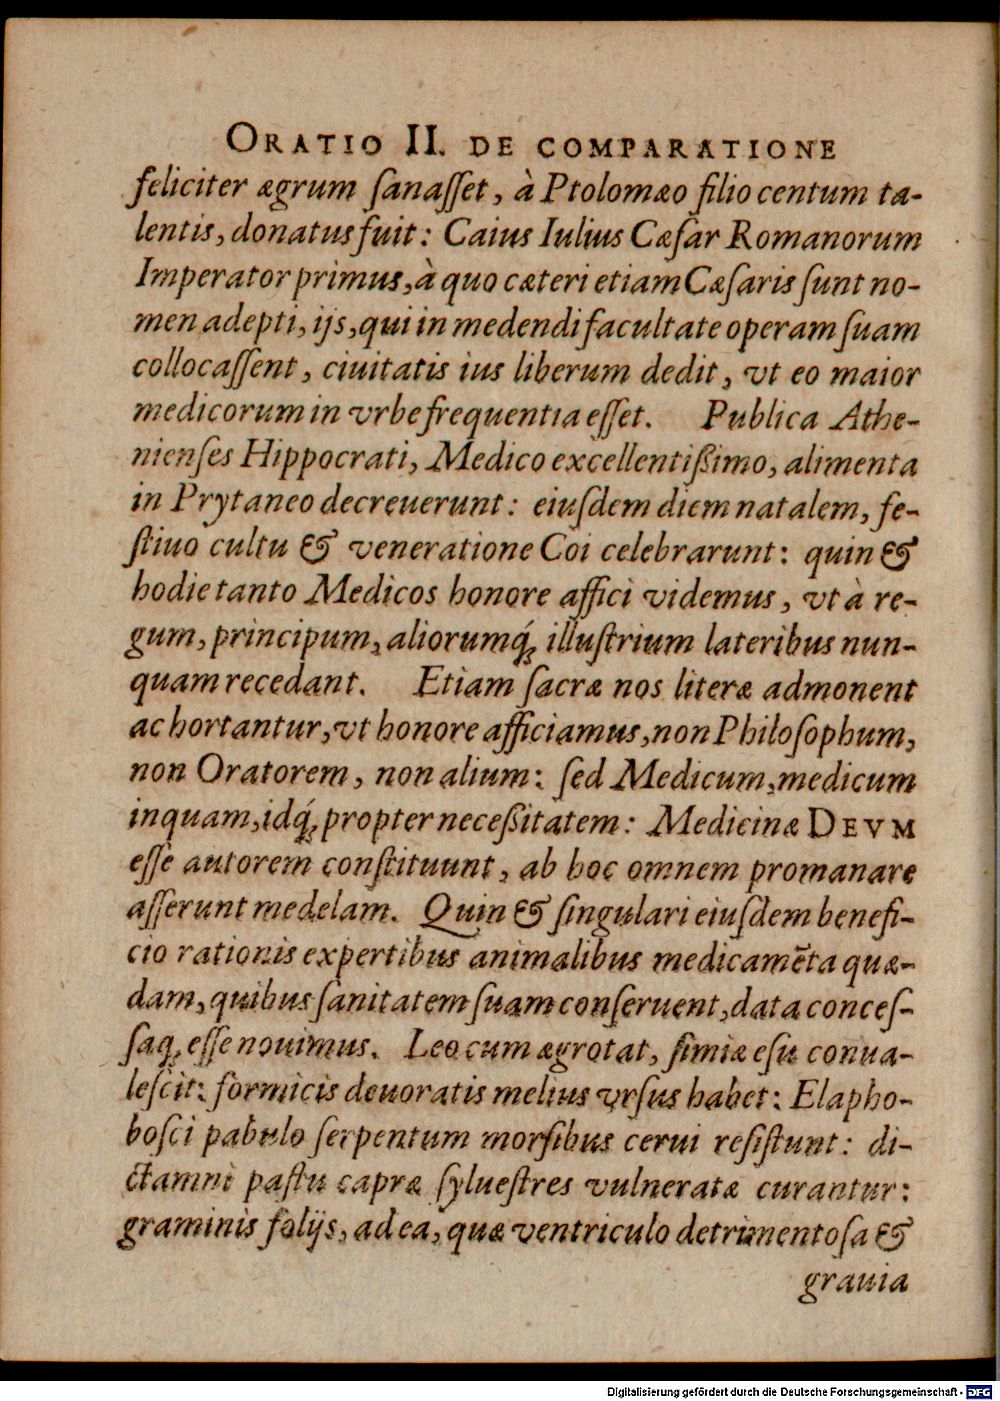 ORATIO II. DE COMPARATIONE
feliciter ægrum ſanaſſet, à Ptolomæo filio centum ta-
lentis, donatus fuit: Caius Iulius Cæſar Romanorum
Imperator primus, à quo cæteri etiam Cæſaris ſunt no-
men adepti, ijs, qui in medendi facultate operam ſuam
collocaſſent, ciuitatis ius liberum dedit, vt eo maior
medicorum in vrbe frequentia eſſet. Publica Athe-
nienſes Hippocrati, Medico excellentißimo, alimenta
in Prytaneo decreuerunt: eiuſdem diem natalem, fe-
ſtiuo cultu & veneratione Coi celebrarunt: quin &
hodie tanto Medicos honore affici videmus, vt à re-
gum, principum, aliorumq́; illuſtrium lateribus nun-
quam recedant. Etiam ſacræ nos literæ admonent
ac hortantur, vt honore afficiamus, non Philoſophum,
non Oratorem, non alium: ſed Medicum, medicum
inquam, idq́; propter neceßitatem: Medicinæ DEVM
eſſe autorem conſtituunt, ab hoc omnem promanare
aſſerunt medelam. Quin & ſingulari eiuſdem benefi-
cio rationis expertibus animalibus medicamēta quæ-
dam, quibus ſanitatem ſuam conſeruent, data conceſ-
ſaq; eſſe nouimus. Leo cum ægrotat, ſimiæ eſu conua-
leſcit: formicis deuoratis melius vrſus habet: Elapho-
boſci pabulo ſerpentum morſibus cerui reſiſtunt: di-
ctamni paſtu capræ ſylueſtres vulneratæ curantur:
graminis folijs, ad ea, quæ ventriculo detrimentoſa &
grauia
Digitalisierung gefördert durch die Deutsche Forschungsgemeinschaft - DFG